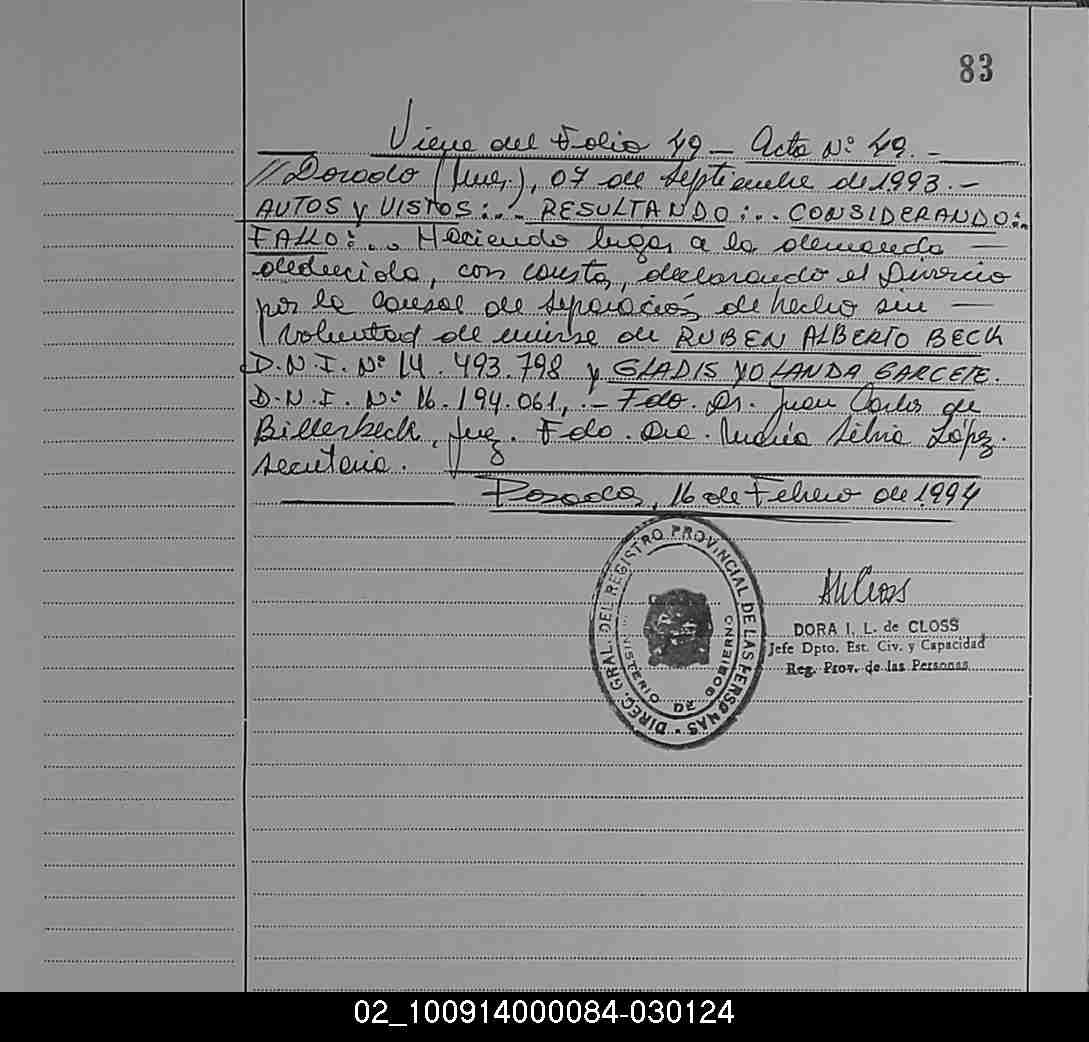 83
Viene del Folio 49 - Acta Nº 49. -
//Dorado (Mnes.), 07 de Septiembre de 1993. -
AUTOS y VISTOS:... RESULTANDO:... CONSIDERANDO:..
FALLO:... Haciendo lugar a la demanda —
deducida, con costa, declarando el Divorcio
por la causal de separación de hecho sin —
voluntad de unirse de RUBEN ALBERTO BECK
D.N.I. Nº 14.493.798 y GLADIS YOLANDA GARCETE.
D.N.I. Nº 16.194.061,.- Fdo. Dr. Juan Carlos de
Billerbeck, Juez. Fdo. Dra. María Silvia López.
Secretaria.
Posadas, 16 de Febrero de 1994
DIREC. GRAL. DEL REGISTRO PROVINCIAL DE LAS PERSONAS
MINISTERIO DE GOBIERNO
DORA I. L. de CLOSS
Jefe Dpto. Est. Civ. y Capacidad
Reg. Prov. de las Personas
02_100914000084-030124